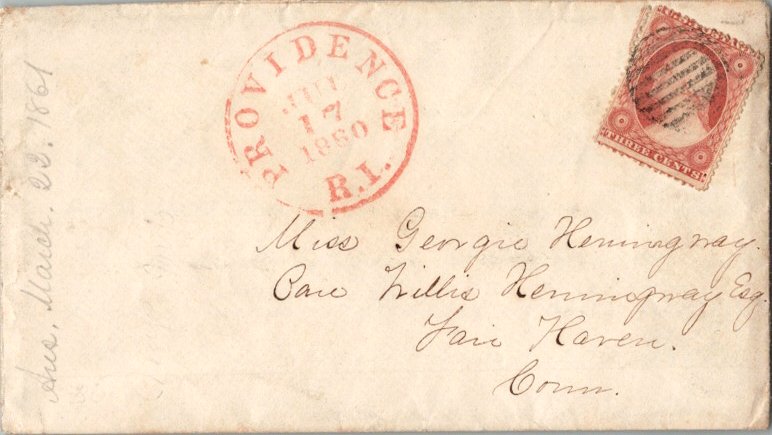 PROVIDENCE
17
1860
R.I.
THREE CENTS
Miss Georgie Hemingway.
Care Willis Hemingway Esq.
Fair Haven.
Conn.
Ans. March. 22. 1861